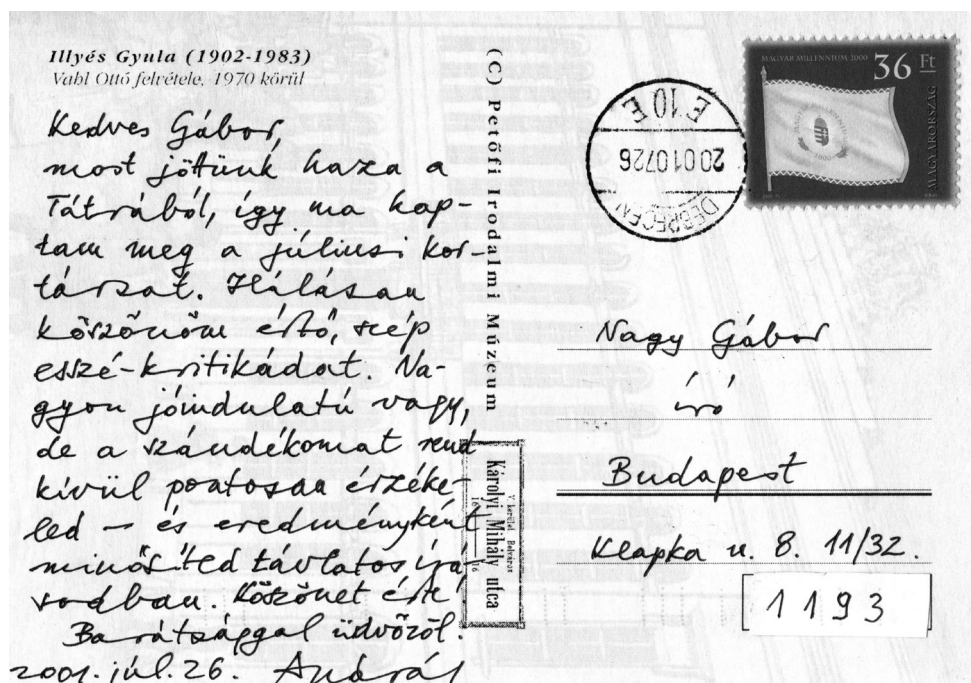 Illyés Gyula (1902-1983)
Vahl Ottó felvétele, 1970 körül
Kedves Gábor,
most jöttünk haza a
Tátrából, így ma kap-
tam meg a júliusi Kor-
társat. Hálásan
köszönöm értő, szép
esszé-kritikádat. Na-
gyon jóindulatú vagy,
de a szándékomat rend
kívül pontosan érzéke-
led – és eredményként
minősíted távlatos írá-
sodban. Köszönet érte!
Barátsággal üdvözöl:
2001. júl. 26. András
(C) Petőfi Irodalmi Múzeum
V. kerület Belváros
Károlyi Mihály utca
E 10 E
20010726
DEBRECEN
MAGYAR MILLENNIUM 2000
36 Ft
MAGYARORSZÁG
Nagy Gábor
író
Budapest
Klapka u. 8. 11/32.
1193